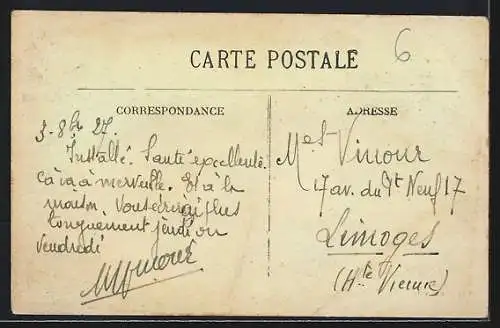 6
CARTE POSTALE
CORRESPONDANCE
ADRESSE
3-8bre 27.
Installé. Santé excellente.
Ça va à merveille. Et à la
maison. Vous écrirai plus
longuement jeudi ou
vendredi
Mes Vimour
17 av. du Pt Neuf 17
Limoges
(Hte Vienne)